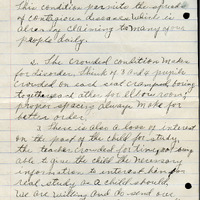 This condition permits the spread
of contagious diseases which is
already claiming to many of our
people daily.
2. The crowded condition makes
for disorder. Think of 3 and 4 pupils
crowded on each seat cramped boring
together as other 400 allow room
proper spacing always make for
better order.
3 There is also a loss of interest
on the part of the child for study,
the teacher crowded for time, not being
able to give the child the necessary
information to interest him for
real study as a child should.
We are willing and do send our